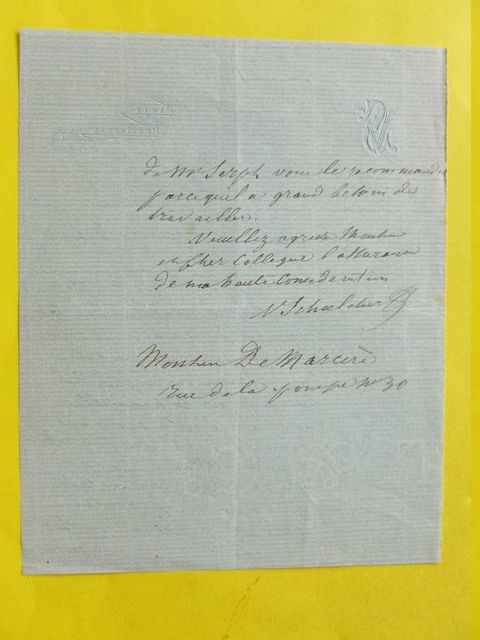 de Mr Serph vous le recommande
parcequ'il a grand besoin de
travailler.
Veuillez agréer Monsieur
et Cher Collègue l'assurance
de ma haute Consideration
V Schoelcher
Monsieur De Marcère
rue de la pompe no 30